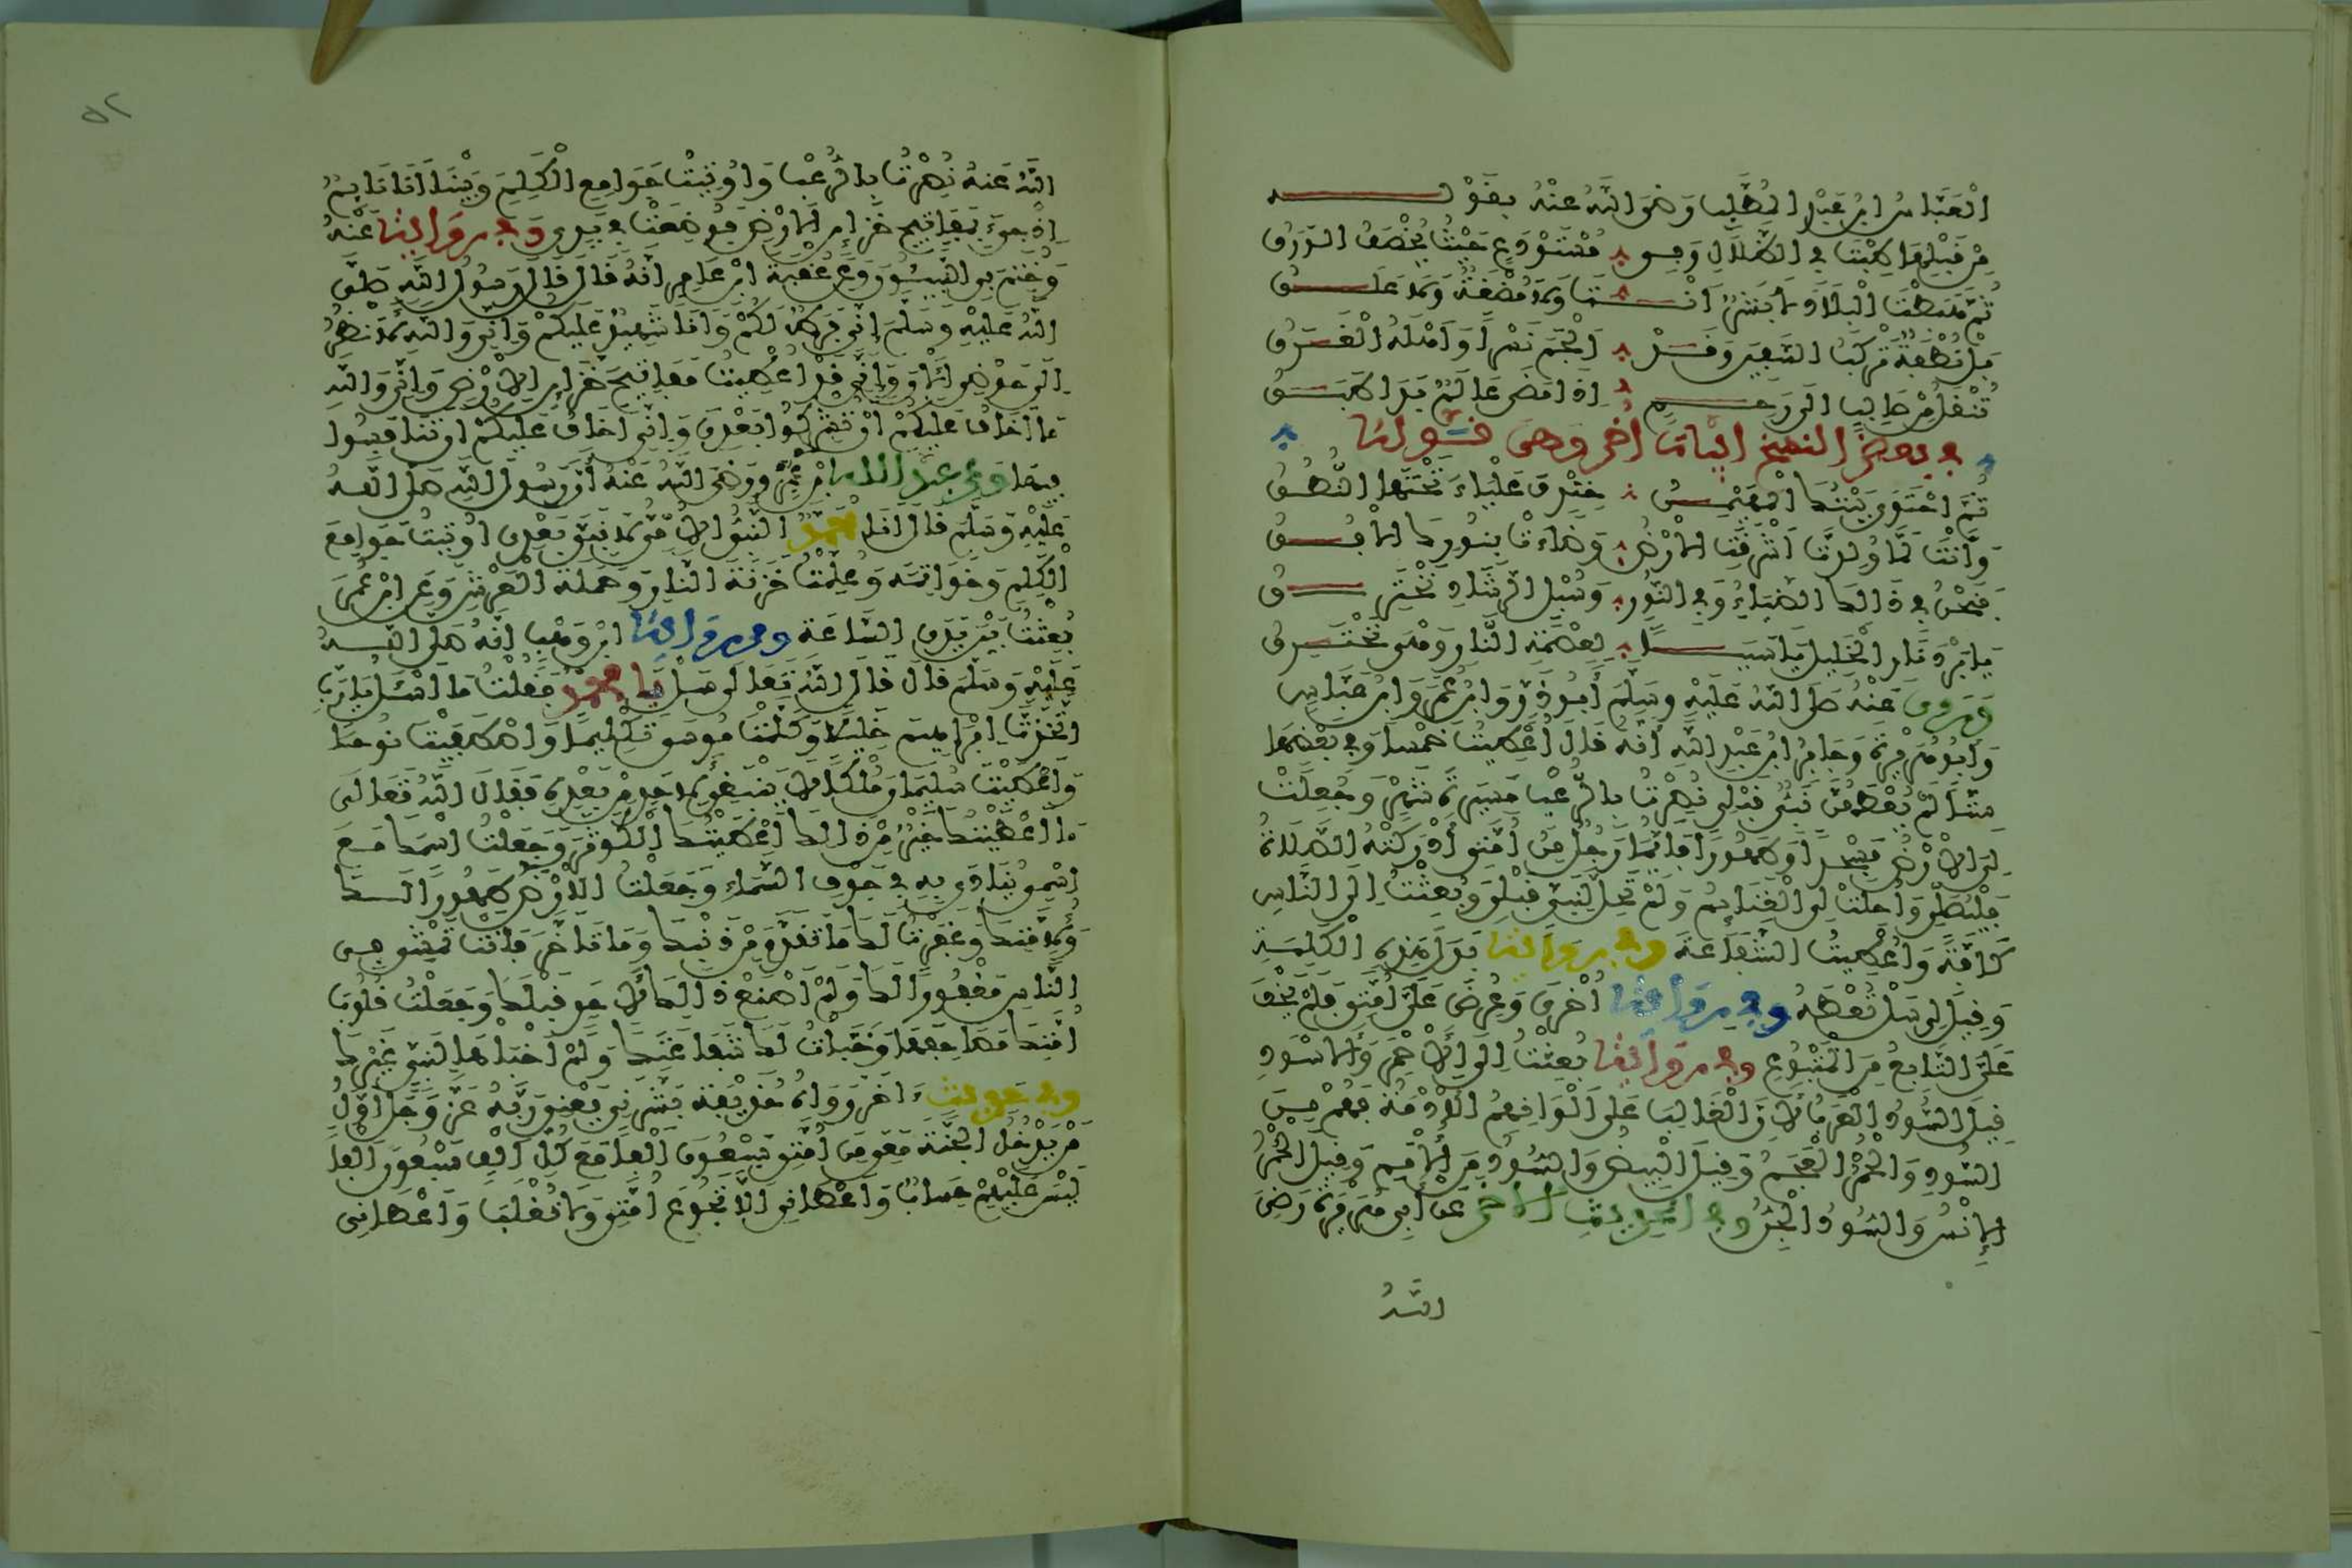 الْعَبَّاسُ ابْنُ عَبْدِ الْمُطَّلِبِ رَضِيَ اللَّهُ عَنْهُ بِقَوْلِــه
مِنْ قَبْلِهَا طِبْتَ فِي الظِّلَالِ وَفِي مُسْتَوْدَعٍ حَيْثُ يُخْصَفُ الْوَرَقُ
ثُمَّ هَبَطْتَ الْبِلَادَ لَا بَشَرٌ أَنْــتَ وَلَا مُضْغَةٌ وَلَا عَلَــقُ
بَلْ نُطْفَةٌ تَرْكَبُ السَّفِينَ وَقَــدْ أَلْجَمَ نَسْرًا وَأَهْلَهُ الْغَــرَقُ
تُنْقَلُ مِنْ صَالِبٍ إِلَى رَحِــمٍ إِذَا مَضَى عَالَمٌ بَدَا طَبَــقُ
في بعض النسخ أبيات أخر وهي قوله
ثُمَّ احْتَوَى بَيْتُكَ الْمُهَيْمِــنُ خِنْدِفَ عَلْيَاءَ تَحْتَهَا النُّطُــقُ
وَأَنْتَ لَمَّا وُلِدْتَ أَشْرَقَتِ الْأَرْضُ وَضَاءَتْ بِنُورِكَ الْأُفُــقُ
فَنَحْنُ فِي ذَلِكَ الضِّيَاءِ وَفِي النُّورِ وَسُبْلِ الرَّشَادِ نَخْتَرِــقُ
يَا بَرْدَ نَارِ الْخَلِيلِ يَا سَبَــبًا لِعِصْمَةِ النَّارِ وَهْيَ تَحْتَــرِقُ
وَرَوَى عَنْهُ صَلَّى اللَّهُ عَلَيْهِ وَسَلَّمَ أَبُو ذَرٍّ وَابْنُ عُمَرَ وَابْنُ عَبَّاسٍ
وَأَبُو هُرَيْرَةَ وَجَابِرُ ابْنُ عَبْدِ اللَّهِ أَنَّهُ قَالَ أُعْطِيتُ خَمْسًا وَفِي بَعْضِهَا
سِتًّا لَمْ يُعْطَهُنَّ نَبِيٌّ قَبْلِي نُصِرْتُ بِالرُّعْبِ مَسِيرَةَ شَهْرٍ وَجُعِلَتْ
لِيَ الْأَرْضُ مَسْجِدًا وَطَهُورًا فَأَيُّمَا رَجُلٍ مِنْ أُمَّتِي أَدْرَكَتْهُ الصَّلَاةُ
فَلْيُصَلِّ وَأُحِلَّتْ لِيَ الْغَنَائِمُ وَلَمْ تَحِلَّ لِنَبِيٍّ قَبْلِي وَبُعِثْتُ إِلَى النَّاسِ
كَافَّةً وَأُعْطِيتُ الشَّفَاعَةَ وفي رواية بَدَلَ هَذِهِ الْكَلِمَةِ
وَقِيلَ لِي سَلْ تُعْطَهُ وفي رواية أُخْرَى وَعُرِضَ عَلَيَّ أُمَّتِي فَلَمْ يَخْفَ
عَلَيَّ التَّابِعُ مِنَ الْمَتْبُوعِ وفي رواية بُعِثْتُ إِلَى الْأَحْمَرِ وَالْأَسْوَدِ
قِيلَ السُّودُ الْعَرَبُ لِأَنَّ الْغَالِبَ عَلَى أَلْوَانِهِمُ الْأُدْمَةُ فَهُمْ مِنَ
السُّودِ وَالْحُمْرُ الْعَجَمُ وَقِيلَ الْبِيضُ وَالسُّودُ مِنَ الْأُمَمِ وَقِيلَ الْحُمْرُ
الْإِنْسُ وَالسُّودُ الْجِنُّ وفي الحديث الآخر عَنْ أَبِي هُرَيْرَةَ رَضِيَ
اللَّهُ
٥٢
اللَّهُ عَنْهُ نُصِرْتُ بِالرُّعْبِ وَأُوتِيتُ جَوَامِعَ الْكَلِمِ وَبَيْنَا أَنَا نَائِمٌ
إِذْ جِيءَ بِمَفَاتِيحِ خَزَائِنِ الْأَرْضِ فَوُضِعَتْ فِي يَدِي وفي رواية عَنْهُ
وَخُتِمَ بِيَ النَّبِيئُونَ وَعَنْ عُقْبَةَ ابْنِ عَامِرٍ أَنَّهُ قَالَ قَالَ رَسُولُ اللَّهِ صَلَّى
اللَّهُ عَلَيْهِ وَسَلَّمَ إِنِّي فَرَطٌ لَكُمْ وَأَنَا شَهِيدٌ عَلَيْكُمْ وَإِنِّي وَاللَّهِ لَأَنْظُرُ
إِلَى حَوْضِي الْآنَ وَإِنِّي قَدْ أُعْطِيتُ مَفَاتِيحَ خَزَائِنِ الْأَرْضِ وَإِنِّي وَاللَّهِ
مَا أَخَافُ عَلَيْكُمْ أَنْ تُشْرِكُوا بَعْدِي وَلَكِنِّي أَخَافُ عَلَيْكُمْ أَنْ تَنَافَسُوا
فِيهَا وعن عبد الله ابْنِ عَمْرٍو رَضِيَ اللَّهُ عَنْهُ أَنَّ رَسُولَ اللَّهِ صَلَّى اللَّهُ
عَلَيْهِ وَسَلَّمَ قَالَ أَنَا محمد النَّبِيُّ الْأُمِّيُّ لَا نَبِيَّ بَعْدِي أُوتِيتُ جَوَامِعَ
الْكَلِمِ وَخَوَاتِمَهُ وَعُلِّمْتُ خَزَنَةَ النَّارِ وَحَمَلَةَ الْعَرْشِ وَعَنِ ابْنِ عُمَرَ
بُعِثْتُ بَيْنَ يَدَيِ السَّاعَةِ ومن رواية ابْنِ وَهْبٍ أَنَّهُ صَلَّى اللَّــهُ
عَلَيْهِ وَسَلَّمَ قَالَ قَالَ اللَّهُ تَعَالَى سَلْ يا محمد فَقُلْتُ مَا أَسْأَلُ يَا رَبِّ
اتَّخَذْتَ إِبْرَاهِيمَ خَلِيلًا وَكَلَّمْتَ مُوسَى تَكْلِيمًا وَاصْطَفَيْتَ نُوحًا
وَأَعْطَيْتَ سُلَيْمَانَ مُلْكًا لَا يَنْبَغِي لِأَحَدٍ مِنْ بَعْدِهِ فَقَالَ اللَّهُ تَعَالَى
مَا أَعْطَيْتُكَ خَيْرٌ مِنْ ذَلِكَ أَعْطَيْتُكَ الْكَوْثَرَ وَجَعَلْتُ اسْمَكَ مَعَ
اسْمِي يُنَادَى بِهِ فِي جَوْفِ السَّمَاءِ وَجَعَلْتُ الْأَرْضَ طَهُورًا لَــكَ
وَلِأُمَّتِكَ وَغَفَرْتُ لَكَ مَا تَقَدَّمَ مِنْ ذَنْبِكَ وَمَا تَأَخَّرَ فَأَنْتَ تَمْشِي فِي
النَّاسِ مَغْفُورًا لَكَ وَلَمْ أَصْنَعْ ذَلِكَ لِأَحَدٍ قَبْلَكَ وَجَعَلْتُ قُلُوبَ
أُمَّتِكَ مَصَاحِفَهَا وَخَبَأْتُ لَكَ شَفَاعَتَكَ وَلَمْ أَخْبَأْهَا لِنَبِيٍّ غَيْرِكَ
وفي حديث آخَرَ رَوَاهُ حُذَيْفَةُ بَشَّرَنِي يَعْنِي رَبَّهُ عَزَّ وَجَلَّ أَوَّلُ
مَنْ يَدْخُلُ الْجَنَّةَ مَعِي مِنْ أُمَّتِي سَبْعُونَ أَلْفًا مَعَ كُلِّ أَلْفٍ سَبْعُونَ أَلْفًا
لَيْسَ عَلَيْهِمْ حِسَابٌ وَأَعْطَانِي أَلَّا تَجُوعَ أُمَّتِي وَلَا تُغْلَبَ وَأَعْطَانِي